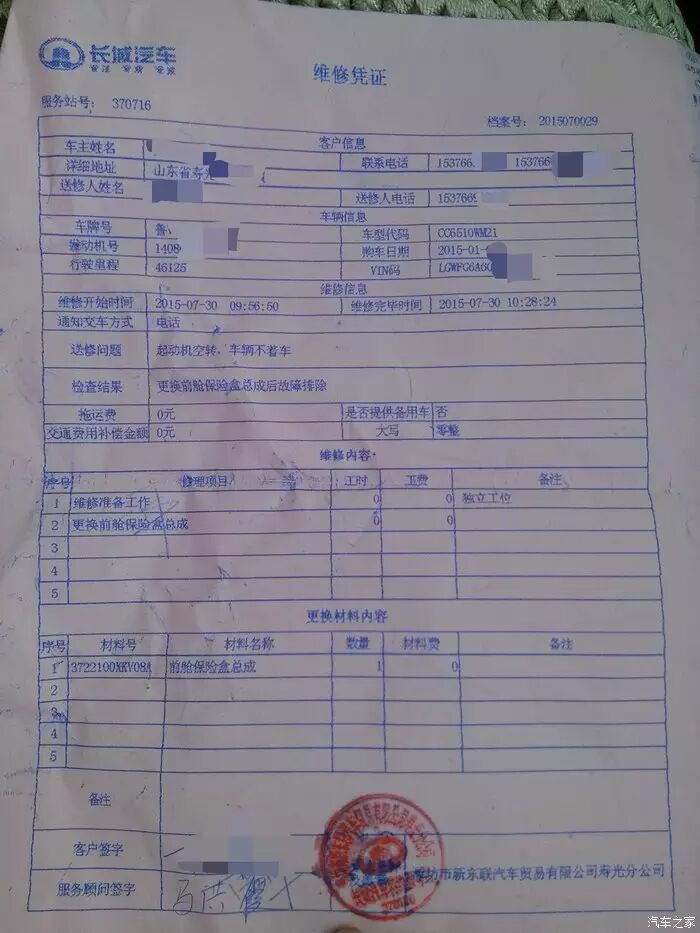 长城汽车
专注 专业 专家
维修凭证
服务站号： 370716
档案号： 2015070029
客户信息
车主姓名
详细地址 山东省寿 联系电话 153766 153766
送修人姓名 送修人电话 153766
车辆信息
车牌号 鲁 车型代码 CC6510WM21
发动机号 1408 购车日期 2015-01-
行驶里程 46125 VIN码 LGWFG6A60
维修信息
维修开始时间 2015-07-30 09:56:50 维修完毕时间 2015-07-30 10:28:24
通知交车方式 电话
送修问题 起动机空转，车辆不着车
检查结果 更换前舱保险盒总成后故障排除
拖运费 0元 是否提供备用车 否
交通费用补偿金额 0元 大写 零整
维修内容
序号 修理项目 工时 工费 备注
1 维修准备工作 0 0 独立工位
2 更换前舱保险盒总成 0 0
3
4
5
更换材料内容
序号 材料号 材料名称 数量 材料费 备注
1 3722100XKV08A 前舱保险盒总成 1 0
2
3
4
5
备注
客户签字
服务顾问签字 坊市新东联汽车贸易有限公司寿光分公司
370716
汽车之家